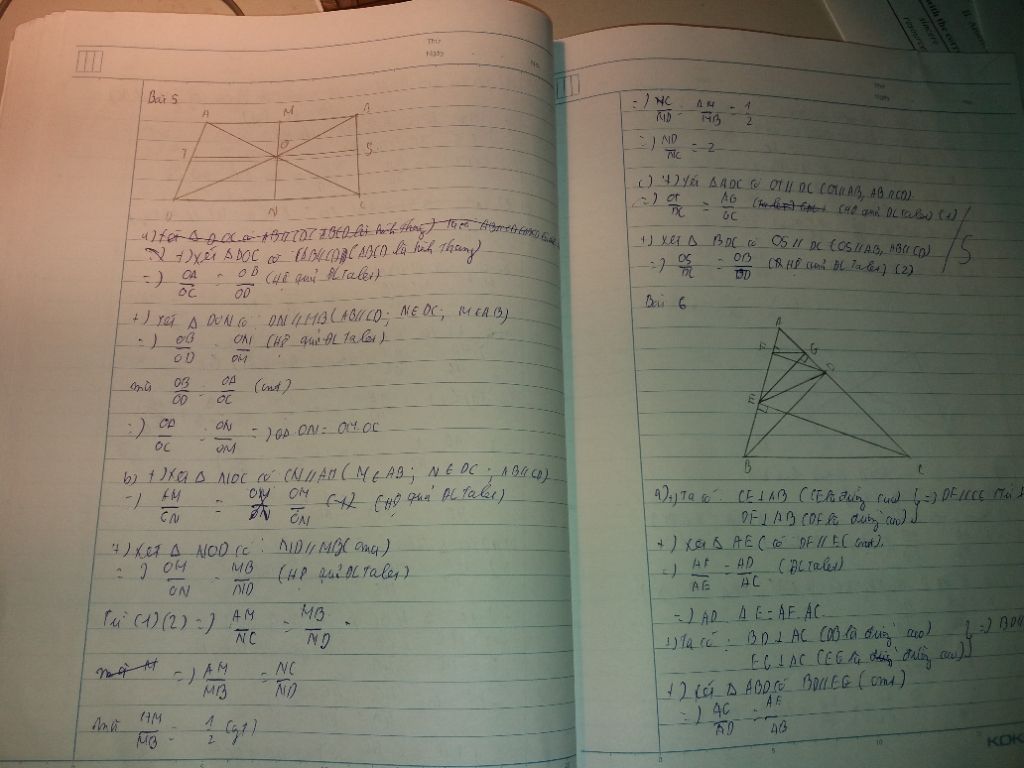 Bài 5
A M B
O
S
D N C
+) Xét △DOC có AB//CD (ABCD là hình thang)
=) OA/OC = OB/OD (HỆ quả ĐL Tales)
+) Xét △ DON có: DN//MB (AB//CD; N∈DC; M∈AB)
=) OB/OD = ON/OM (HỆ quả ĐL Tales)
mà OB/OD = OA/OC (cmt)
=) OA/OC = ON/OM =) OA ON = OM.OC
b) +) Xét △ NOC có CN//AM (M∈AB; N∈DC; AB//CD)
=) AM/CN = OM/ON (HỆ quả ĐL Tales)
+) Xét △ NOD có: ND//MB (cmt)
=) OM/ON = MB/ND (HỆ quả ĐL Tales)
Từ (1)(2) =) AM/NC = MB/ND
=) AM/MB = NC/ND
mà AM/MB = 1/2 (gt)
=) NC/ND = AM/MB = 1/2
=) ND/NC = 2
c) +) Xét △ADC có OI//DC (OI//AB, AB//CD)
(HỆ quả ĐL Tales) (1)
+) Xét △ BDC có OS//DC (OS//AB, AB//CD)
=) OS/DC = OB/BD (HỆ quả ĐL Tales) (2)
Bài 6
A
F G
D
E
B C
a) +) Ta có: CE⊥AB (CE là đường cao) } =) DF//CE
DF⊥AB (DF là đường cao)
+) Xét △ AEC có DF//EC (cmt)
=) AF/AE = AD/AC (ĐL Tales)
=) AD AE = AF AC
+) Ta có: BD⊥AC (DB là đường cao) } =) BD//
EG⊥AC (EG là đường cao)
+) Xét △ ABD có BD//EG (cmt)
=) AG/AD = AE/AB
KOK